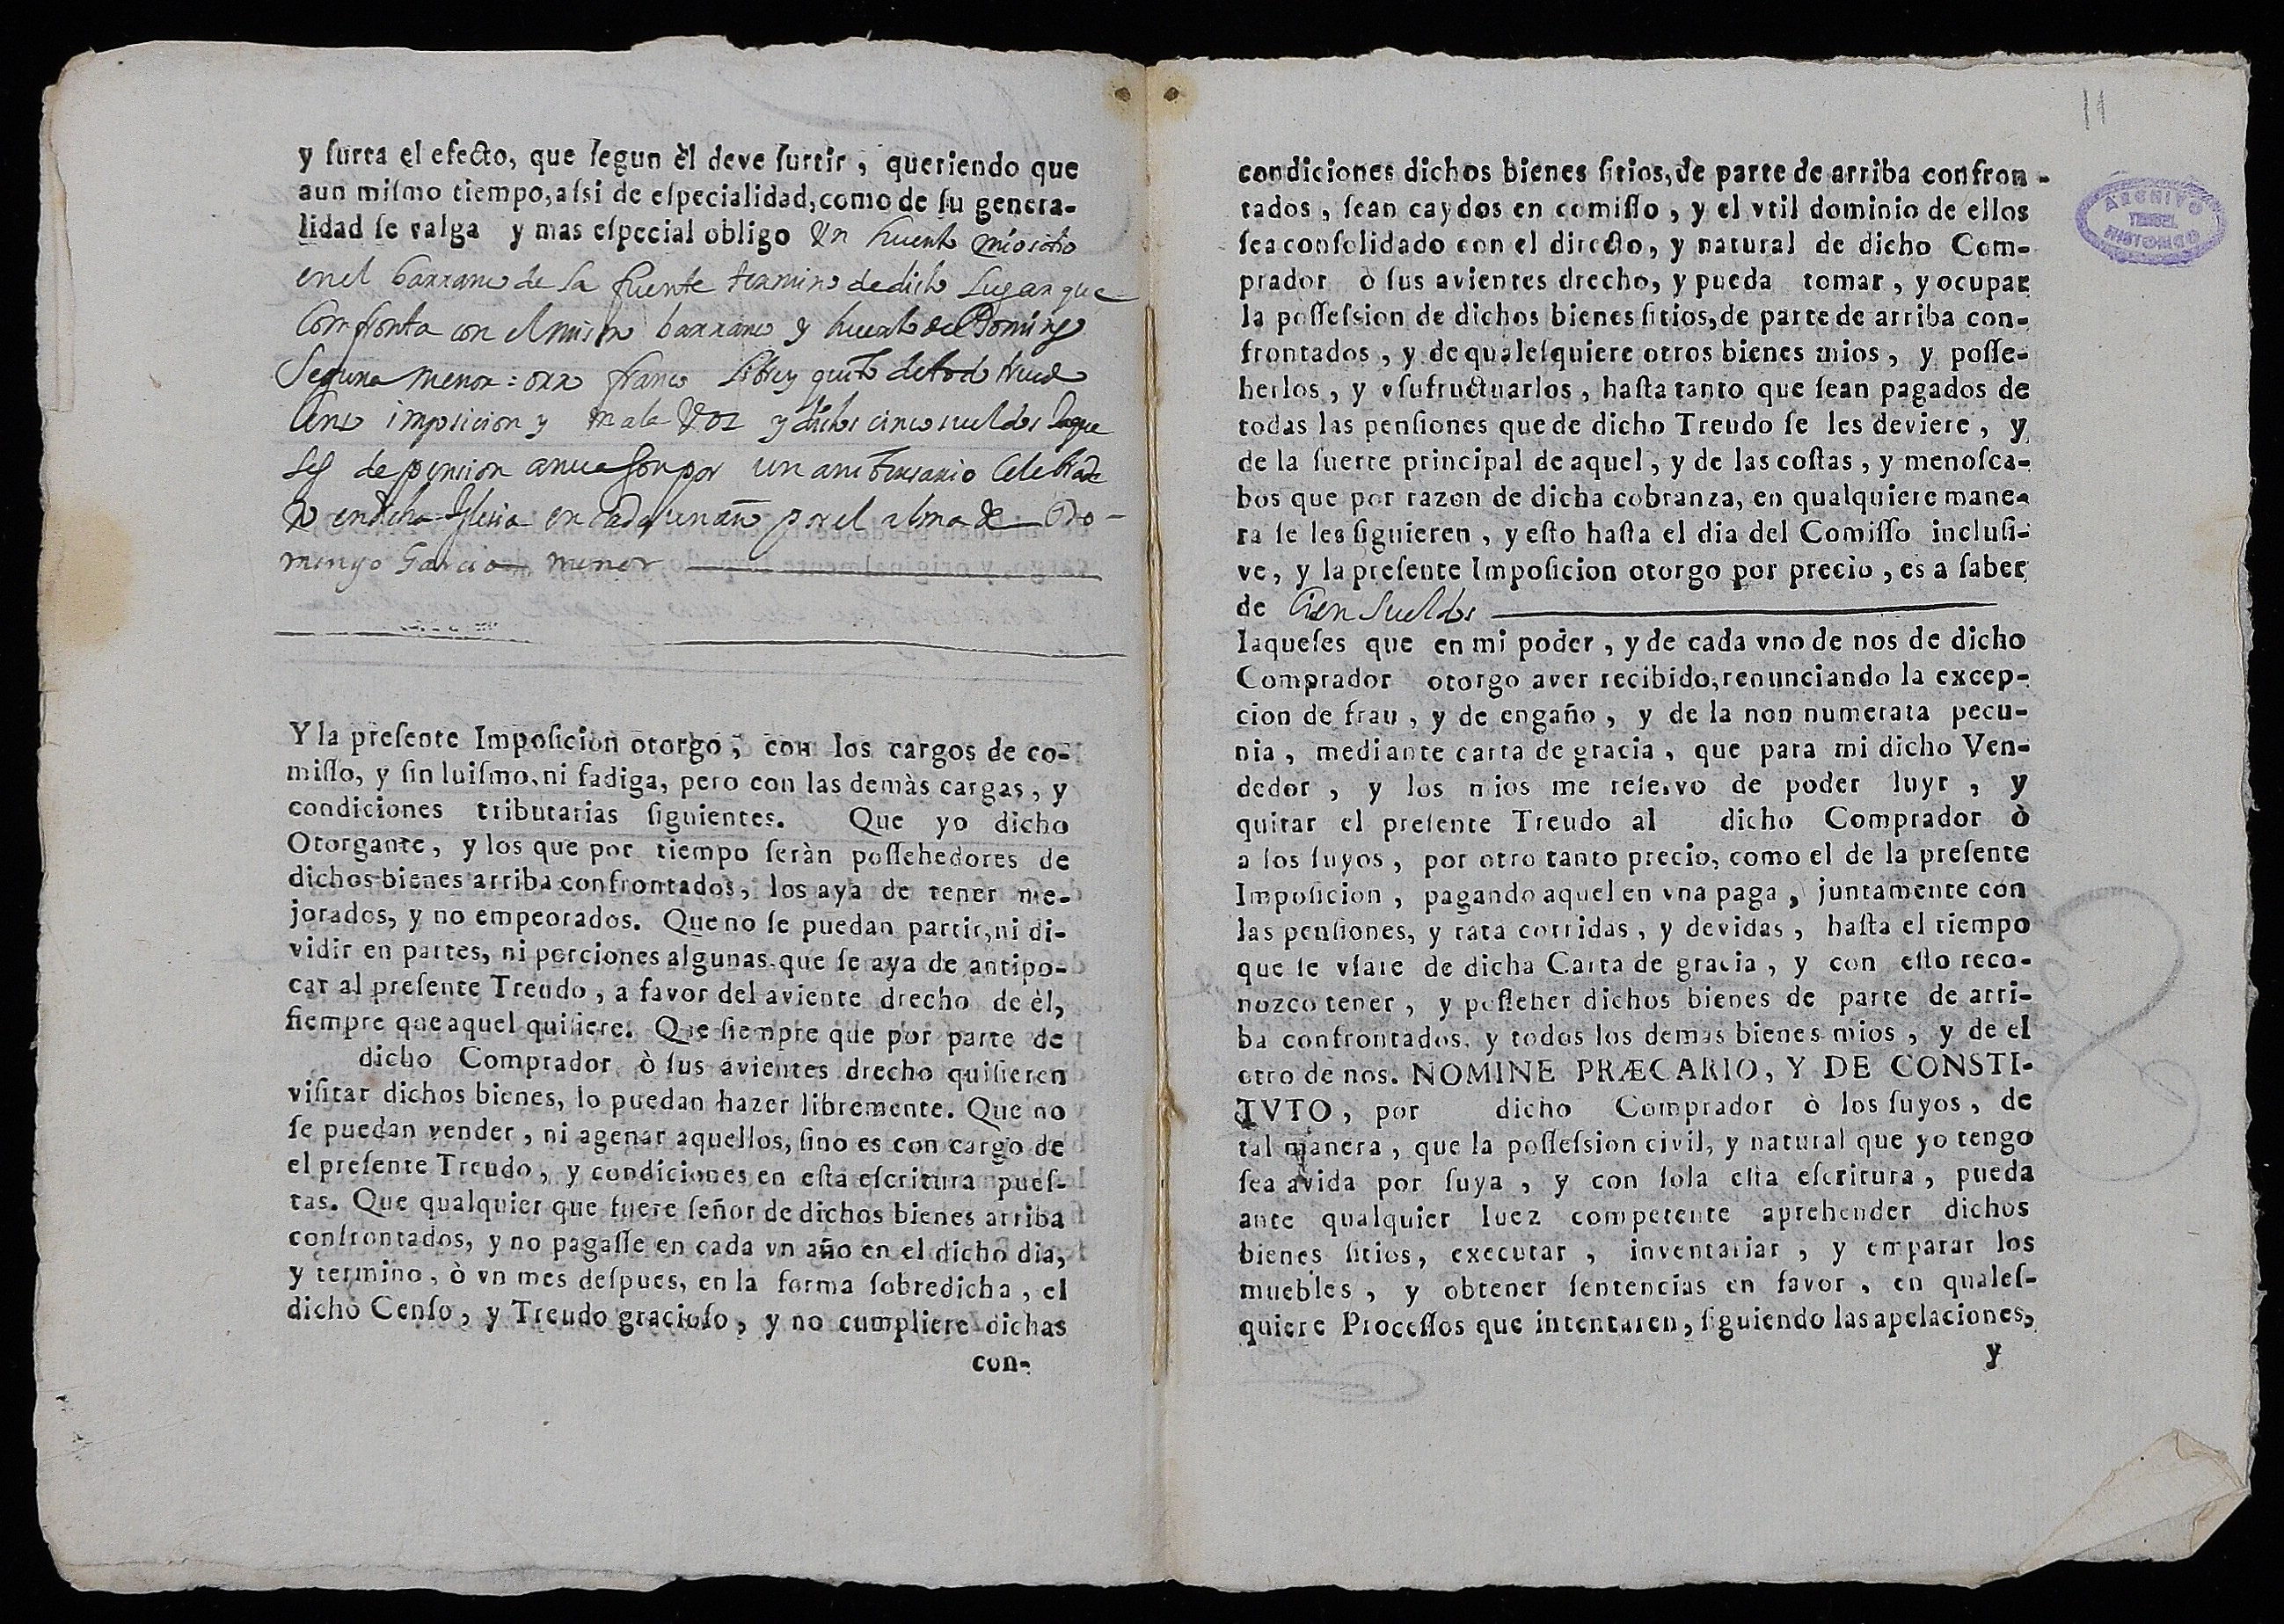 y ſurta el efecto, que ſegun èl deve ſurtir, queriendo que
aun miſmo tiempo, aſsi de eſpecialidad, como de ſu genera-
lidad ſe valga y mas eſpecial obligo Vn huerto mio sitio
enel barranco de la fuente termino de dicho Lugar que
Confronta con el mismo barranco y huerto de Domingo
Segura menor = orro franco Libre y quito de todo treudo
Censo imposicion y mala Voz y dichos cinco sueldos Jaque
ses de pension anua son por un aniversario Celebrade
ro en dicha Iglesia en cada un año por el alma de Do-
mingo Garcia menor
Y la preſente Impoſicion otorgo, con los cargos de co-
miſſo, y ſin luiſmo, ni fadiga, pero con las demàs cargas, y
condiciones tributarias ſiguientes. Que yo dicho
Otorgante, y los que por tiempo ſeràn poſſehedores de
dichos bienes arriba confrontados, los aya de tener me-
jorados, y no empeorados. Que no ſe puedan partir, ni di-
vidir en partes, ni porciones algunas que ſe aya de antipo-
car al preſente Treudo, a favor del aviente drecho de èl,
ſiempre que aquel quiſiere. Que ſiempre que por parte de
dicho Comprador ò ſus avientes drecho quiſieren
viſitar dichos bienes, lo puedan hazer libremente. Que no
ſe puedan vender, ni agenar aquellos, ſino es con cargo de
el preſente Treudo, y condiciones en eſta eſcritura pueſ-
tas. Que qualquier que fuere ſeñor de dichos bienes arriba
confrontados, y no pagaſſe en cada vn año en el dicho dia,
y termino, ò vn mes deſpues, en la forma ſobredicha, el
dicho Cenſo, y Treudo gracioſo, y no cumpliere dichas
con-
11
ARCHIVO
TERUEL
HISTORICO
condiciones dichos bienes ſitios, de parte de arriba confron-
tados, ſean caydos en comiſſo, y el vtil dominio de ellos
ſea conſolidado con el directo, y natural de dicho Com-
prador ò ſus avientes drecho, y pueda tomar, y ocupar
la poſſeſsion de dichos bienes ſitios, de parte de arriba con-
frontados, y de qualeſquiere otros bienes mios, y poſſe-
herlos, y vſufructuarlos, haſta tanto que ſean pagados de
todas las penſiones que de dicho Treudo ſe les deviere, y
de la ſuerte principal de aquel, y de las coſtas, y menoſca-
bos que por razon de dicha cobranza, en qualquiere mane-
ra ſe les ſiguieren, y eſto haſta el dia del Comiſſo incluſi-
ve, y la preſente Impoſicion otorgo por precio, es a ſaber
de Cien Sueldos
Iaqueſes que en mi poder, y de cada vno de nos de dicho
Comprador otorgo aver recibido, renunciando la excep-
cion de frau, y de engaño, y de la non numerata pecu-
nia, mediante carta de gracia, que para mi dicho Ven-
dedor, y los mios me reſervo de poder luyr, y
quitar el preſente Treudo al dicho Comprador ò
a los ſuyos, por otro tanto precio, como el de la preſente
Impoſicion, pagando aquel en vna paga, juntamente con
las penſiones, y rata corridas, y devidas, haſta el tiempo
que ſe vſare de dicha Carta de gracia, y con eſto reco-
nozco tener, y poſſeher dichos bienes de parte de arri-
ba confrontados, y todos los demas bienes mios, y de el
otro de nos. NOMINE PRÆCARIO, Y DE CONSTI-
TVTO, por dicho Comprador ò los ſuyos, de
tal manera, que la poſſeſsion civil, y natural que yo tengo
ſea avida por ſuya, y con ſola eſta eſcritura, pueda
ante qualquier Iuez competente aprehender dichos
bienes ſitios, executar, inventariar, y emparar los
muebles, y obtener ſentencias en favor, en qualeſ-
quiere Proceſſos que intentaren, ſiguiendo las apelaciones,
y